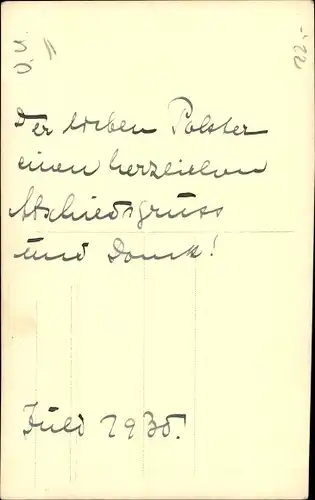 O.U.
22,-
Der lieben Polster
einen herzlichen
Abschiedsgruss
und Dank!
1935!